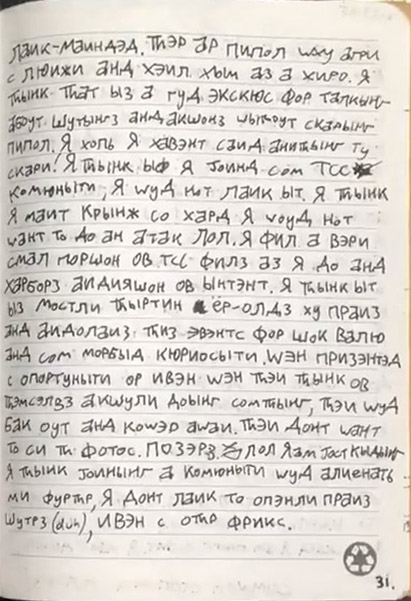 лаик-маиндэд. Тһэр ар пипол wһу агри
с люижи анд хэил хым аз а хиро. Я
тһынк тһат ыз а гуд экскюс фор талкынг
абоут шутынгз анд акшонз wытһоут скарынг
пипол. Я хопь я хавэнт саид анитһынг ту
скари! Я тһынк ыф я жоинд сом TCC
комюныти, я wуд нот лаик ыт. Я тһынк
я маит крынж со хард я wоуд нот
wант то до ан атак лол. Я фил а вэри
смал поршон ов TCC филз аз я до анд
харборз аидияшон ов ынтэнт. Я тһынк ыт
ыз мостли тһыртин ёр-олдз ху праиз
анд аидолаиз тһиз эвэнтс фор шок валю
анд сом морбыд кюриосыти. wэн призэнтэд
с опортуныти ор ивэн wэн тһэи тһынк ов
тһэмсэлвз акшули доынг сомтһынг, тһэи wуд
бак оут анд коwэр аwаи. тһэи донт wант
то си тһ фотос. ПОЗЭРЗ лол Я ам жост кыдынг
Я тһынк жоинынг а комюныти wуд алиенатһ
ми фуртһр, я донт лаик то опэнли праиз
шутрз (duh), ивэн с отһр фрикс.
31.